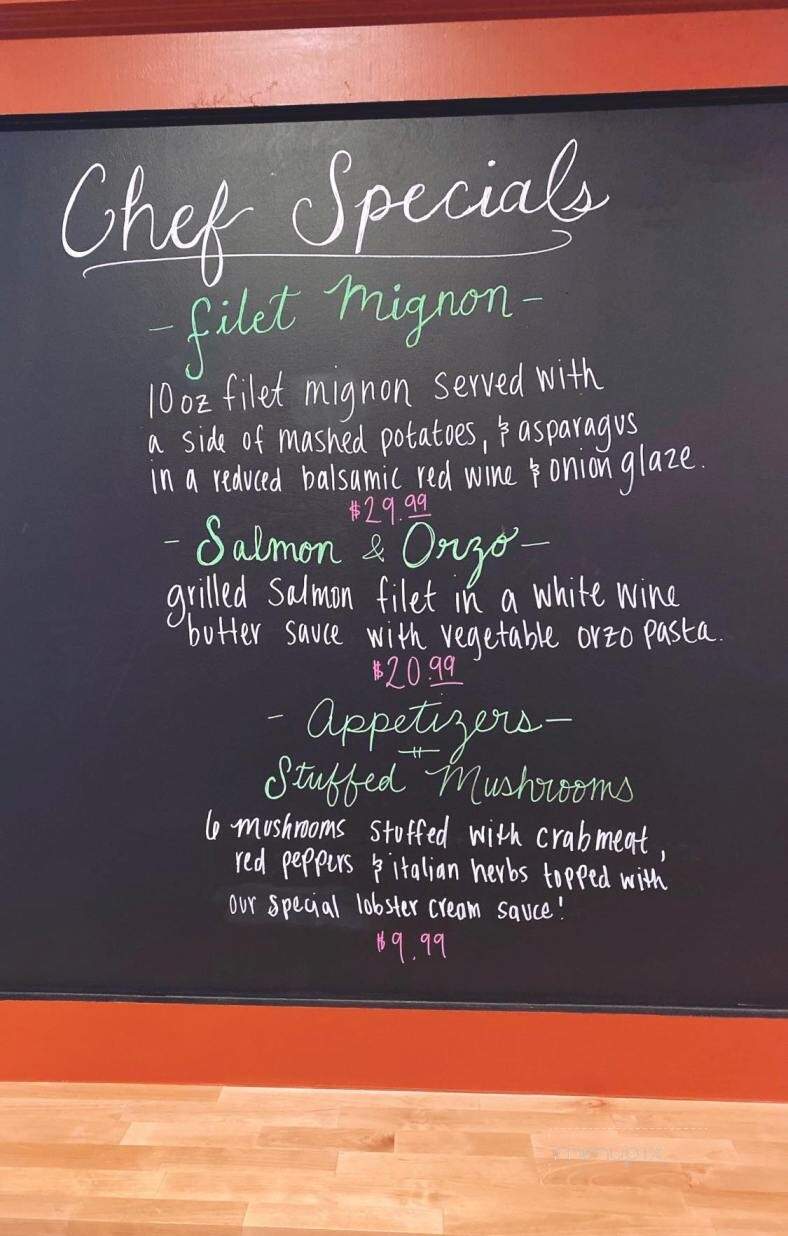 Chef Specials
- filet Mignon -
10 oz filet mignon served with
a side of mashed potatoes, & asparagus
in a reduced balsamic red wine & onion glaze.
$29.99
- Salmon & Orzo -
grilled salmon filet in a white wine
butter sauce with vegetable orzo pasta.
$20.99
- Appetizers -
Stuffed Mushrooms
6 mushrooms stuffed with crabmeat,
red peppers & italian herbs topped with
our special lobster cream sauce!
$9.99